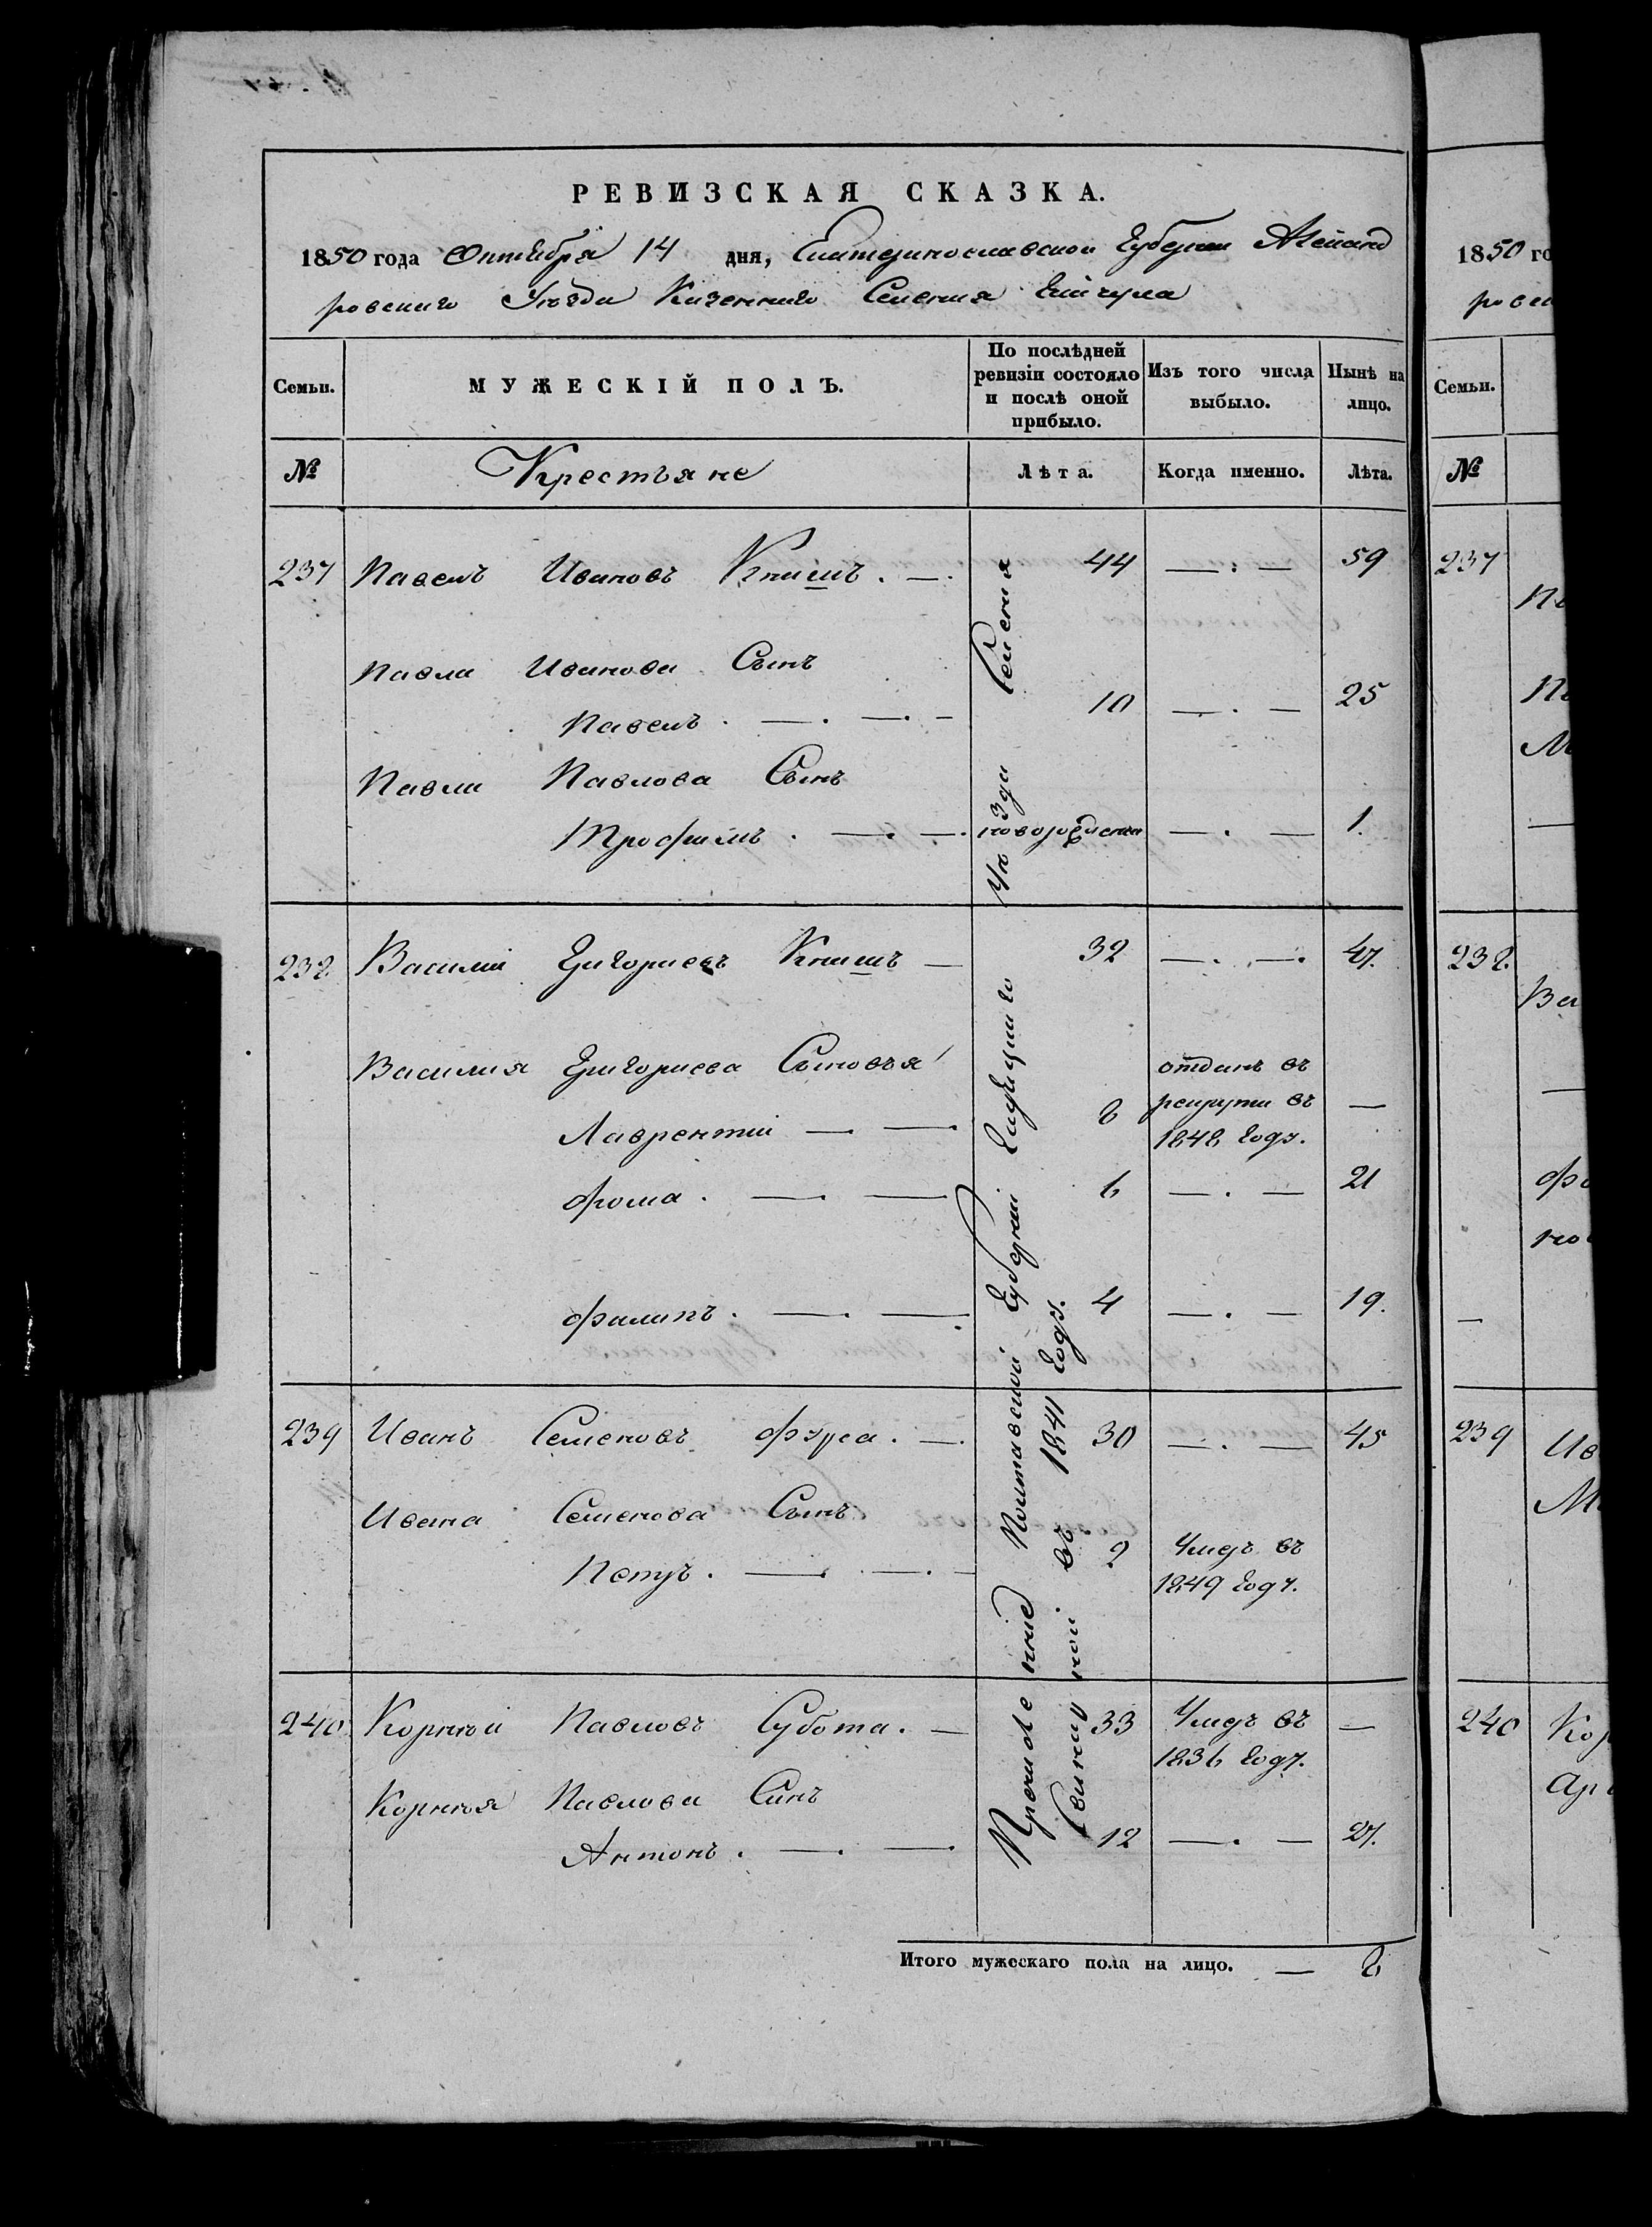 РЕВИЗСКАЯ СКАЗКА.
1850 года Октября 14 дня, Екатеринославской Губернии Александ
ровскаго Уѣзда Казеннаго Селения
Семьи. МУЖЕСКІЙ ПОЛЪ. По послѣдней ревизіи состояло и послѣ оной прибыло. Изъ того числа выбыло. Нынѣ на лицо.
№ Крестьяне Лѣта. Когда именно. Лѣта.
237 Павелъ Ивановъ Книшъ . — . 44 — . — 59
Павла Иванова Сынъ
Павелъ . — . — . – 10 — . — 25
Павла Павлова Сынъ
Трофимъ . — . — . новорожденъ — . — 1.
238 Василий Григориевъ Книшъ — 32 — . — . 47.
Василия Григориева Сыновья
Лаврентий — — 8 отданъ въ рекруты въ 1848 году. —
Фома . — . — 6 — . — 21
Филипъ . — . — 4 — . — 19.
239 Иванъ Семеновъ . — . 30 — . — 45
Ивана Семенова Сынъ
Петръ . — . — . – 2 Умеръ въ 1849 году.
240 Корнѣй Павловъ Субота . — 33 Умеръ въ 1836 году. —
Корнѣя Павлова Синъ
Антонъ . — . — 12 — . — 27.
Полтавской Губернии Гадяцкаго Уѣзда Селения
въ 1841 году.
Итого мужескаго пола на лицо. — 8
1850 го
ровск
Семьи.
№
237
Па
Па
М
238.
Ва
Фо
но
239
Ив
М
240
Кор